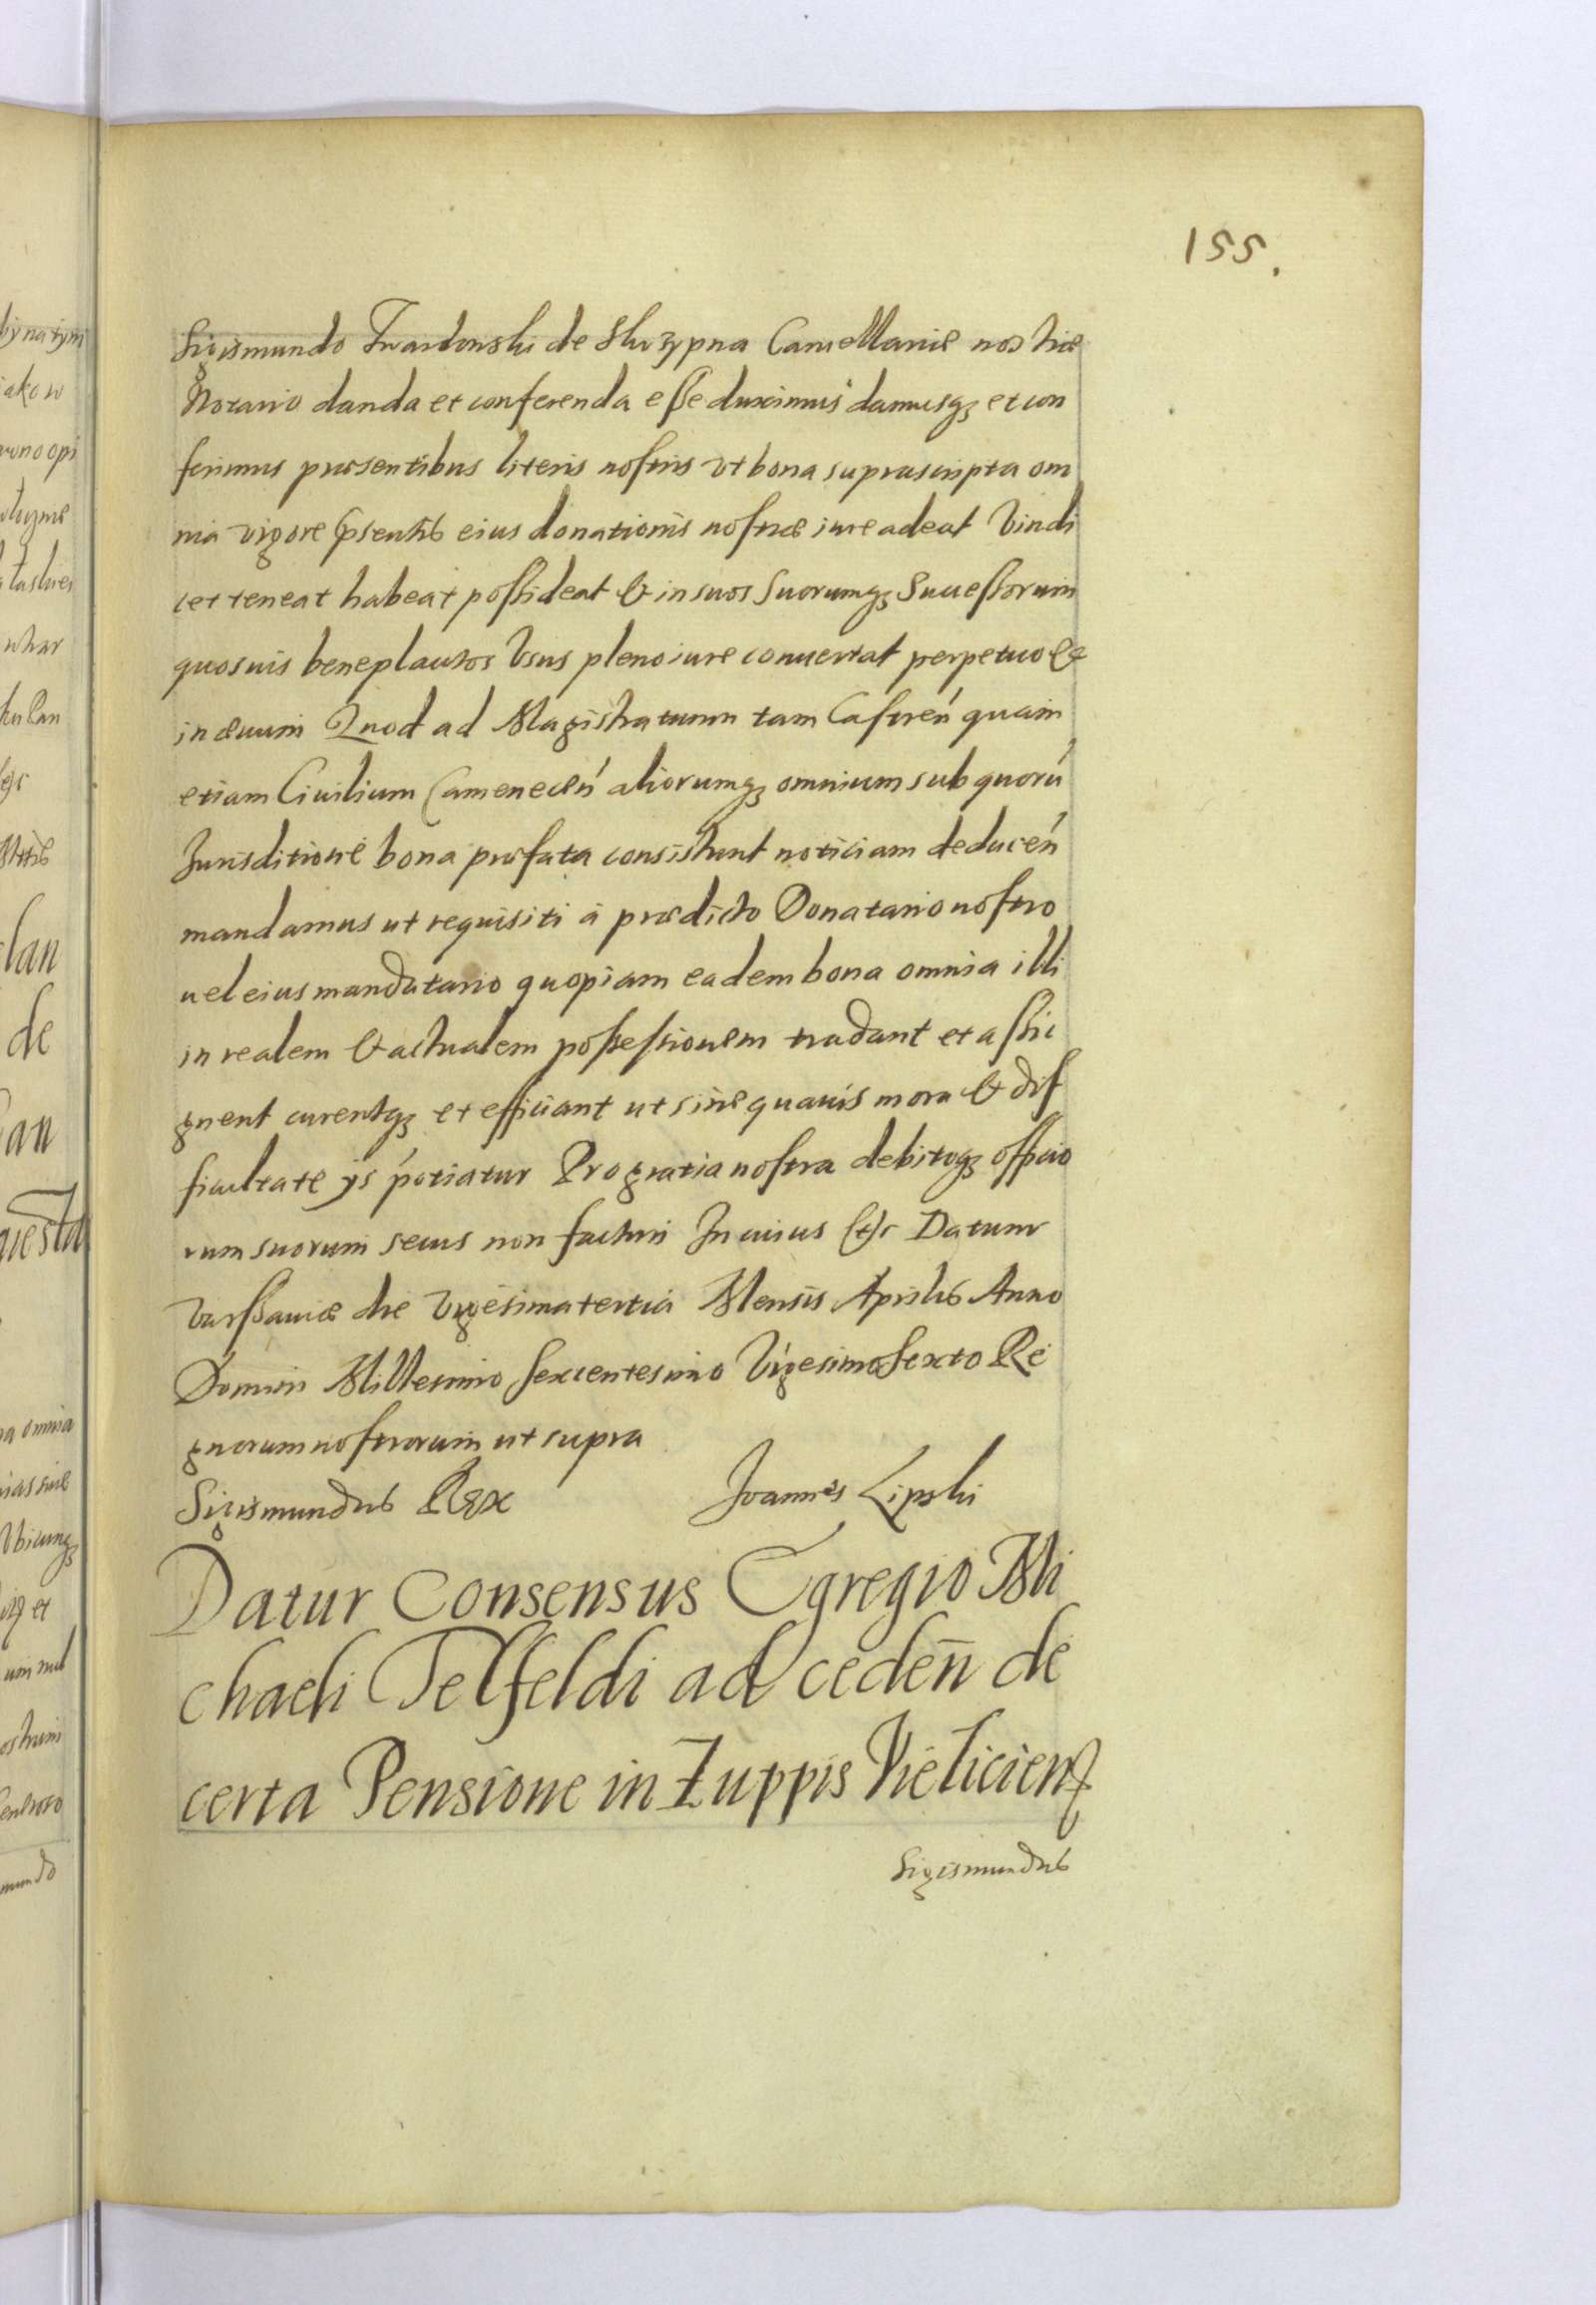 155.
Sigismundo Twardowski de Skrzypna Cancellariæ nostræ
Notario danda et conferenda esse duximus damusq₃ et con
ferimus præsentibus literis nostris vt bona suprascripta om
nia vigore pñsentis eius donationis nostræ iure adeat Vindi
cet teneat habeat possideat & in suos Suorumq₃ Successorum
quosuis beneplacitos Vsus pleno iure conuertat perpetuo &
in æuum Quod ad Magistratuum tam Castreń quam
etiam Ciuilium Cameneceń aliorumq₃ omnium sub quorú
Jurisditione bona præfata consistunt noticiam deduceń
mandamus ut requisiti à prædicto Donatario nostro
uel eius mandatario quopiam eadem bona omnia illi
in realem & actualem possessionem tradant et assi
gnent curentq₃ et efficiant ut sine quauis mora & dif
ficultate ijs potiatur Pro gratia nostra debitoq₃ officio
rum suorum secus non facturi In cuius &c Datum
Varssauiæ die Vigesima tertia Mensis Aprilis Anno
Domini Millesimo Sexcentesimo Vigesimo Sexto Re
gnorum nostrorum ut supra
Sigismundus Rex Joannes Lipski
Datur Consensus Egregio Mi
chaeli Telfeldi ad cedeñ de
certa Pensione in Zuppis Vieliciens
Sigismundus
lan
de
an
omnia
mundo